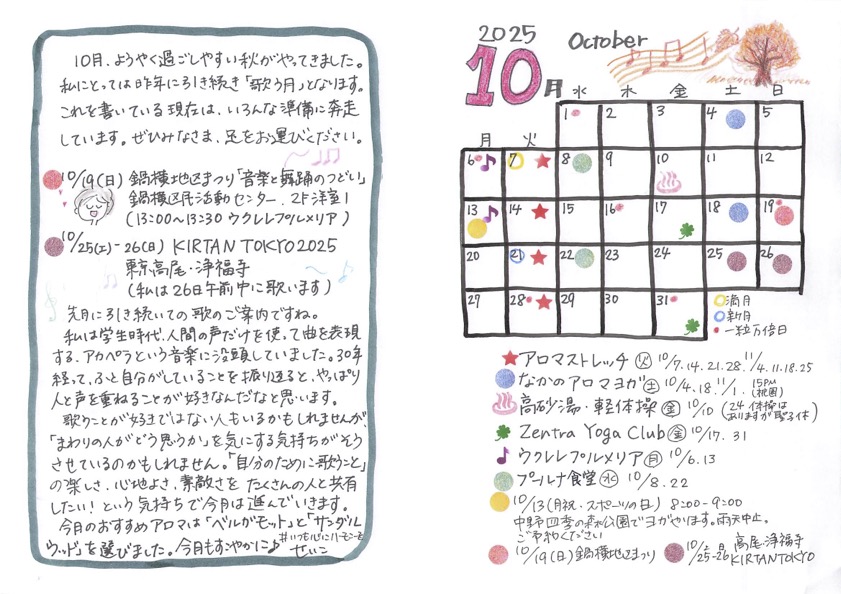 10月、ようやく過ごしやすい秋がやってきました。
私にとっては昨年に引き続き「歌う月」となります。
これを書いている現在は、いろんな準備に奔走
しています。ぜひみなさま、足をお運びください。
10/19(日) 鍋横地区まつり「音楽と舞踊のつどい」
鍋横区民活動センター、2F洋室1
(13:00〜13:30 ウクレレプルメリア)
10/25(土)-26(日) KIRTAN TOKYO 2025
東京高尾・浄福寺
(私は26日午前中に歌います)
先月に引き続いての歌のご案内ですね。
私は学生時代、人間の声だけを使って曲を表現
する、アカペラという音楽に没頭していました。30年
経って、ふと自分がしていることを振り返ると、やっぱり
人と声を重ねることが好きなんだなと思います。
歌うことが好きではない人もいるかもしれませんが、
「まわりの人がどう思うか」を気にする気持ちがそう
させているのかもしれません。「自分のために歌うこと」
の楽しさ、心地よさ、素敵さを たくさんの人と共有
したい！という気持ちで今月は進んでいきます。
今月のおすすめアロマは「ベルガモット」と「サンダル
ウッド」を選びました。今月もすこやかに♪
#いつも心にハーモニーを
せいこ
2025
10月
October
水 木 金 土 日
1 2 3 4 5
月 火
6 7 8 9 10 11 12
13 14 15 16 17 18 19
20 21 22 23 24 25 26
27 28 29 30 31
満月
新月
一粒万倍日
アロマストレッチ (火) 10/7.14.21.28. 11/4.11.18.25
なかのアロマヨガ (土) 10/4.18. 11/1. 15PM (桃園)
高砂湯・軽体操 (金) 10/10 (24 体操は ありますが聖子休)
Zentra Yoga Club (金) 10/17. 31
ウクレレプルメリア (月) 10/6.13
プールナ食堂 (水) 10/8.22
10/13(月祝・スポーツの日) 8:00-9:00
中野四季の森公園でヨガやります。雨天中止。
ご予約ください
10/19(日) 鍋横地区まつり
10/25-26 土日 高尾・浄福寺
KIRTAN TOKYO